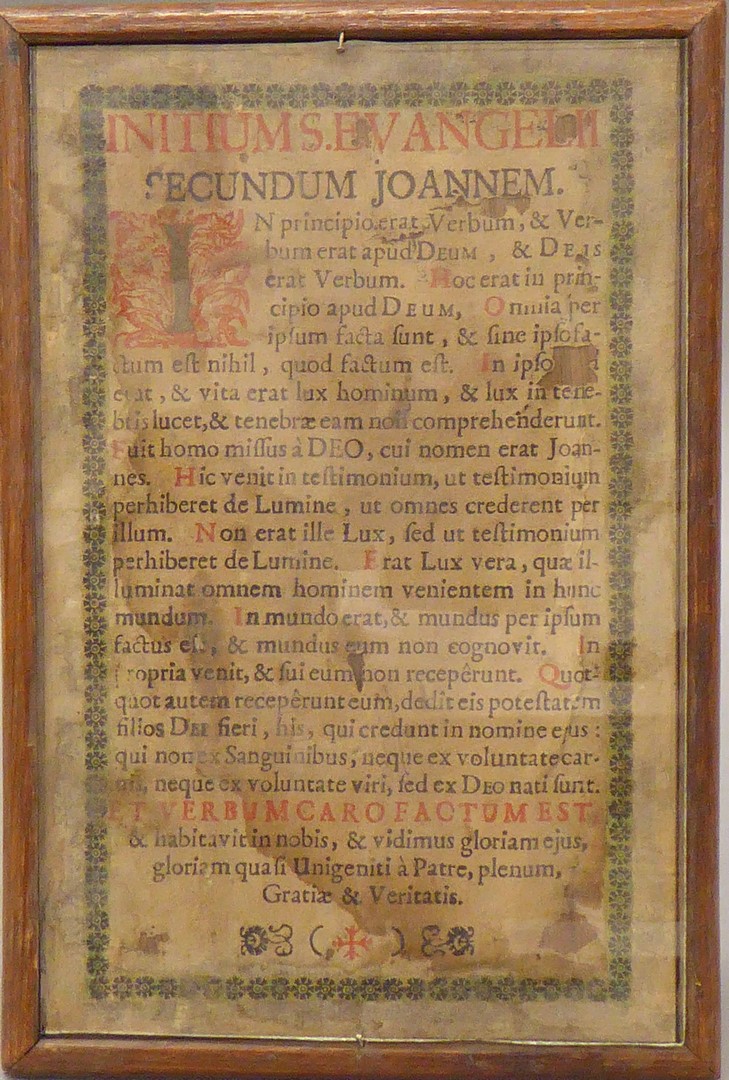 INITIUM S. EVANGELII
SECUNDUM JOANNEM.
IN principio erat Verbum, & Ver-
bum erat apud DEUM, & DEUS
erat Verbum. Hoc erat in prin-
cipio apud DEUM, Omnia per
ipſum facta ſunt, & ſine ipſo fa-
ctum eſt nihil, quod factum eſt. In ipſo
erat, & vita erat lux hominum, & lux in tene-
bris lucet, & tenebræ eam non comprehenderunt.
Fuit homo miſſus à DEO, cui nomen erat Joan-
nes. Hic venit in teſtimonium, ut teſtimonium
perhiberet de Lumine, ut omnes crederent per
illum. Non erat ille Lux, ſed ut teſtimonium
perhiberet de Lumine. Erat Lux vera, quæ il-
luminat omnem hominem venientem in hunc
mundum. In mundo erat, & mundus per ipſum
factus eſt, & mundus eum non cognovit. In
propria venit, & ſui eum non recepêrunt. Quot-
quot autem recepêrunt eum, dedit eis poteſtatem
filios DEI fieri, his, qui credunt in nomine ejus:
qui non ex Sanguinibus, neque ex voluntate car-
nis, neque ex voluntate viri, ſed ex DEO nati ſunt.
ET VERBUM CARO FACTUM EST,
& habitavit in nobis, & vidimus gloriam ejus,
gloriam quaſi Unigeniti à Patre, plenum,
Gratiæ & Veritatis.